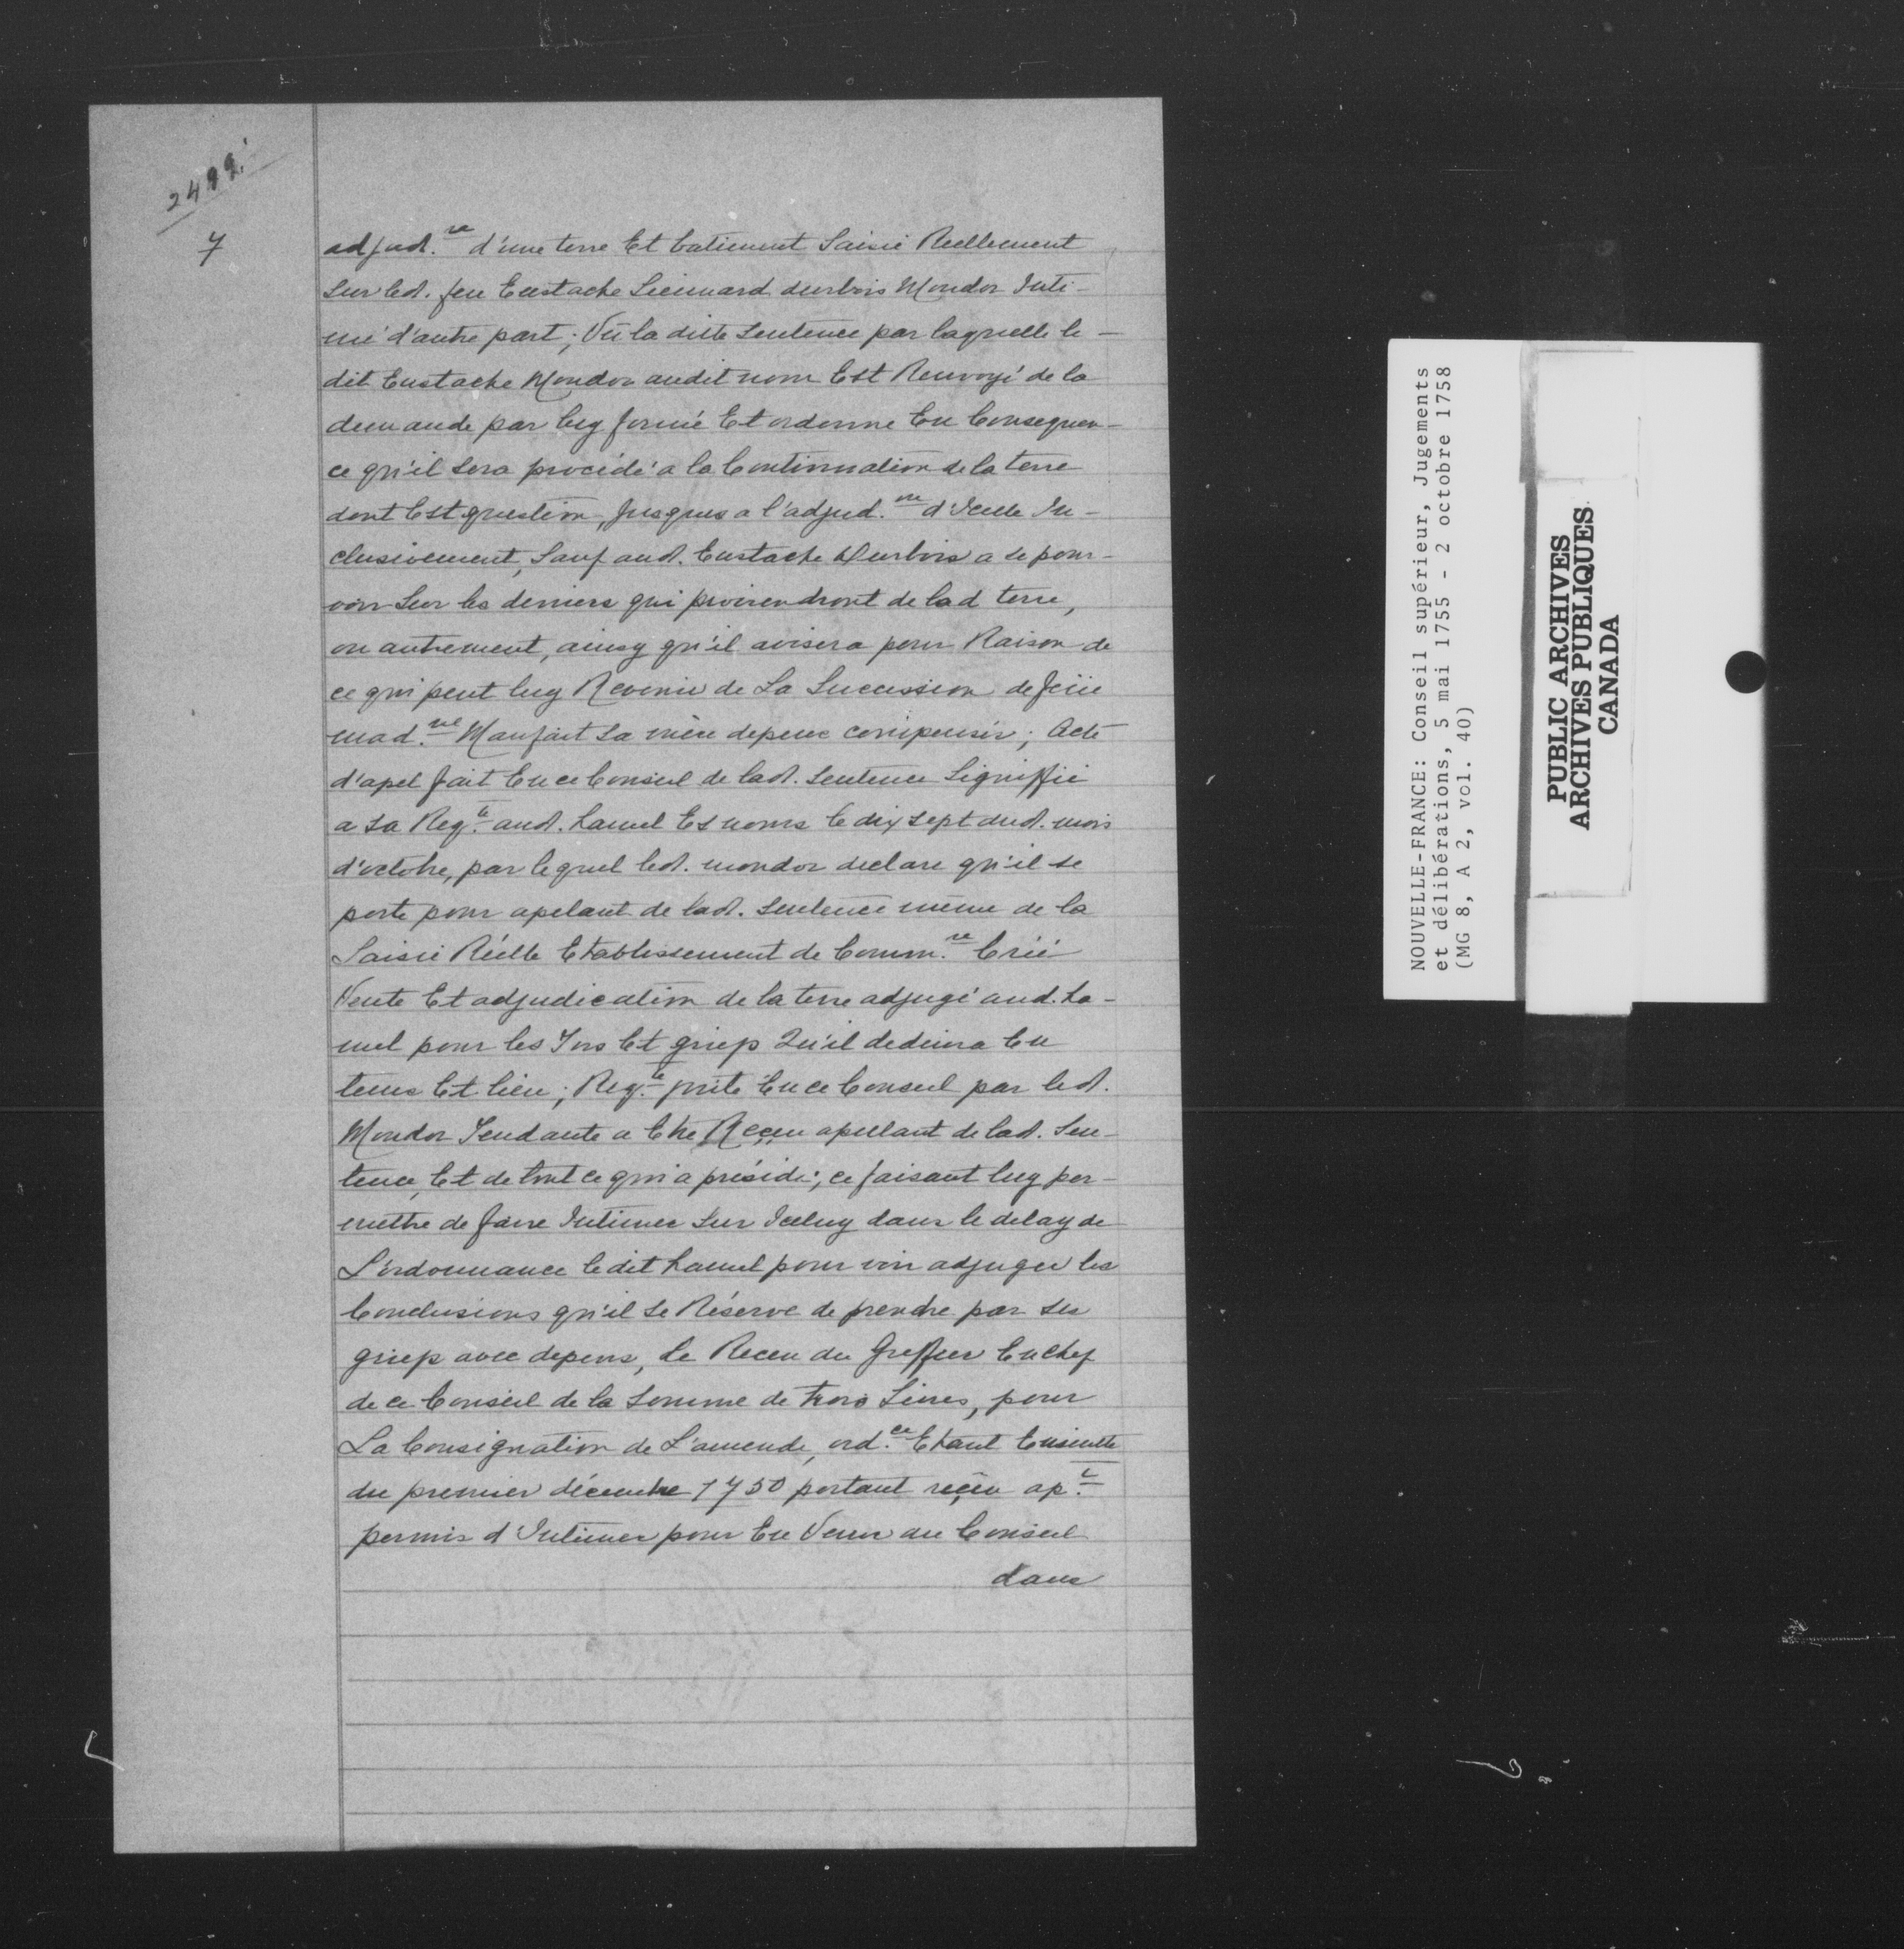 2499.
7
adjud.re d'une terre Et batiment Saisie Reellement
Sur led. feu Eustache Lienard durbois Mondor Inti-
mé d'autre part; Vû la ditte Sentence par laquelle le-
dit Eustache Mondor audit nom Est Renvoyé de la
demande par luy formé Et ordonne En Consequen-
ce qu'il Sera procédé a la Continuation de la terre
dont Est question, Jusques a l'adjud.on d'Icelle In-
clusivement, Sauf aud. Eustache Durbois a se pour-
voir Sur les deniers qui proviendront de lad terre,
ou autrement, ainsy qu'il avisera pour Raison de
ce qui peut luy Revenir de La Succession de feüe
mad.ne Manfait Sa mère depens compensés; Acte
d'apel fait En ce Conseil de lad. Sentence Signiffié
a Sa Reg.te aud. hamel Es noms le dix sept dud. mois
d'octobre, par lequel led. mondor declare qu'il se
porte pour apelant de lad. Sentence même de la
Saisie Réelle Etablissement de Comm.re Criée
Vente Et adjudication de la terre adjugé aud. ha-
mel pour les Tors Et griefs Qu'il deduira En
tems Et lieu; Reg.te pnte En ce Conseil par led.
Mondor Tendante a Etre Reçeu apellant de lad. Sen-
tence, Et de tout ce qui a présidé; ce faisant luy per-
mettre de faire Intimer Sur Iceluy dans le delay de
L'ordonnance ledit hamel pour voir adjuger les
Conclusions qu'il Se Réserve de prendre par ses
griefs avec depens, le Receu du Greffier En chef
de ce Conseil de la Somme de trois Livres, pour
La Consignation de L'amende, ord.ce Etant Ensuitte
du premier décembre 1750 portant reçeu ap.t
permis d'Intimer pour En Venir au Conseil
dans
NOUVELLE-FRANCE: Conseil supérieur, Jugements
et délibérations, 5 mai 1755 - 2 octobre 1758
(MG 8, A 2, vol. 40)
PUBLIC ARCHIVES
ARCHIVES PUBLIQUES
CANADA